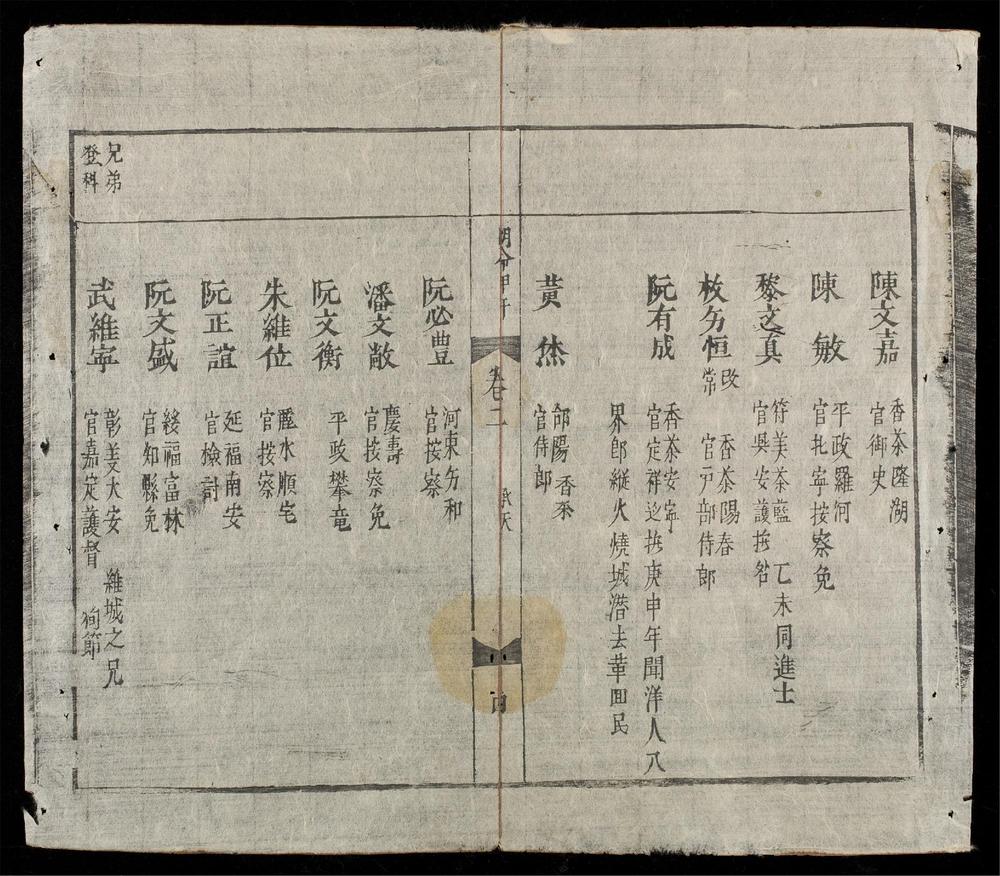 陳文嘉
香茶隆湖
官御史
陳敏
平政羅河
官北寧按察免
黎文真
符美茶藍 乙未同進士
官吳安護撫
枚勿恒 改常
香茶陽春
官戸部侍郎
阮有成
香茶安寧
官定祥迄撫庚申年聞洋人入
界卽縱火燒城潛去革囬民
黄
部陽香茶
官侍郎
明命甲午
卷二
承天
阮必豊
河東勿和
官按察
潘文敞
慶壽
官按察免
阮文衡
平政攀竜
朱維位
麗水順宅
官按察
阮正誼
延福南安
官檢討
阮文盛
綏福富林
官知縣免
兄弟
登科
武維寧
彰義大安 維城之兄
官嘉定護督 殉節